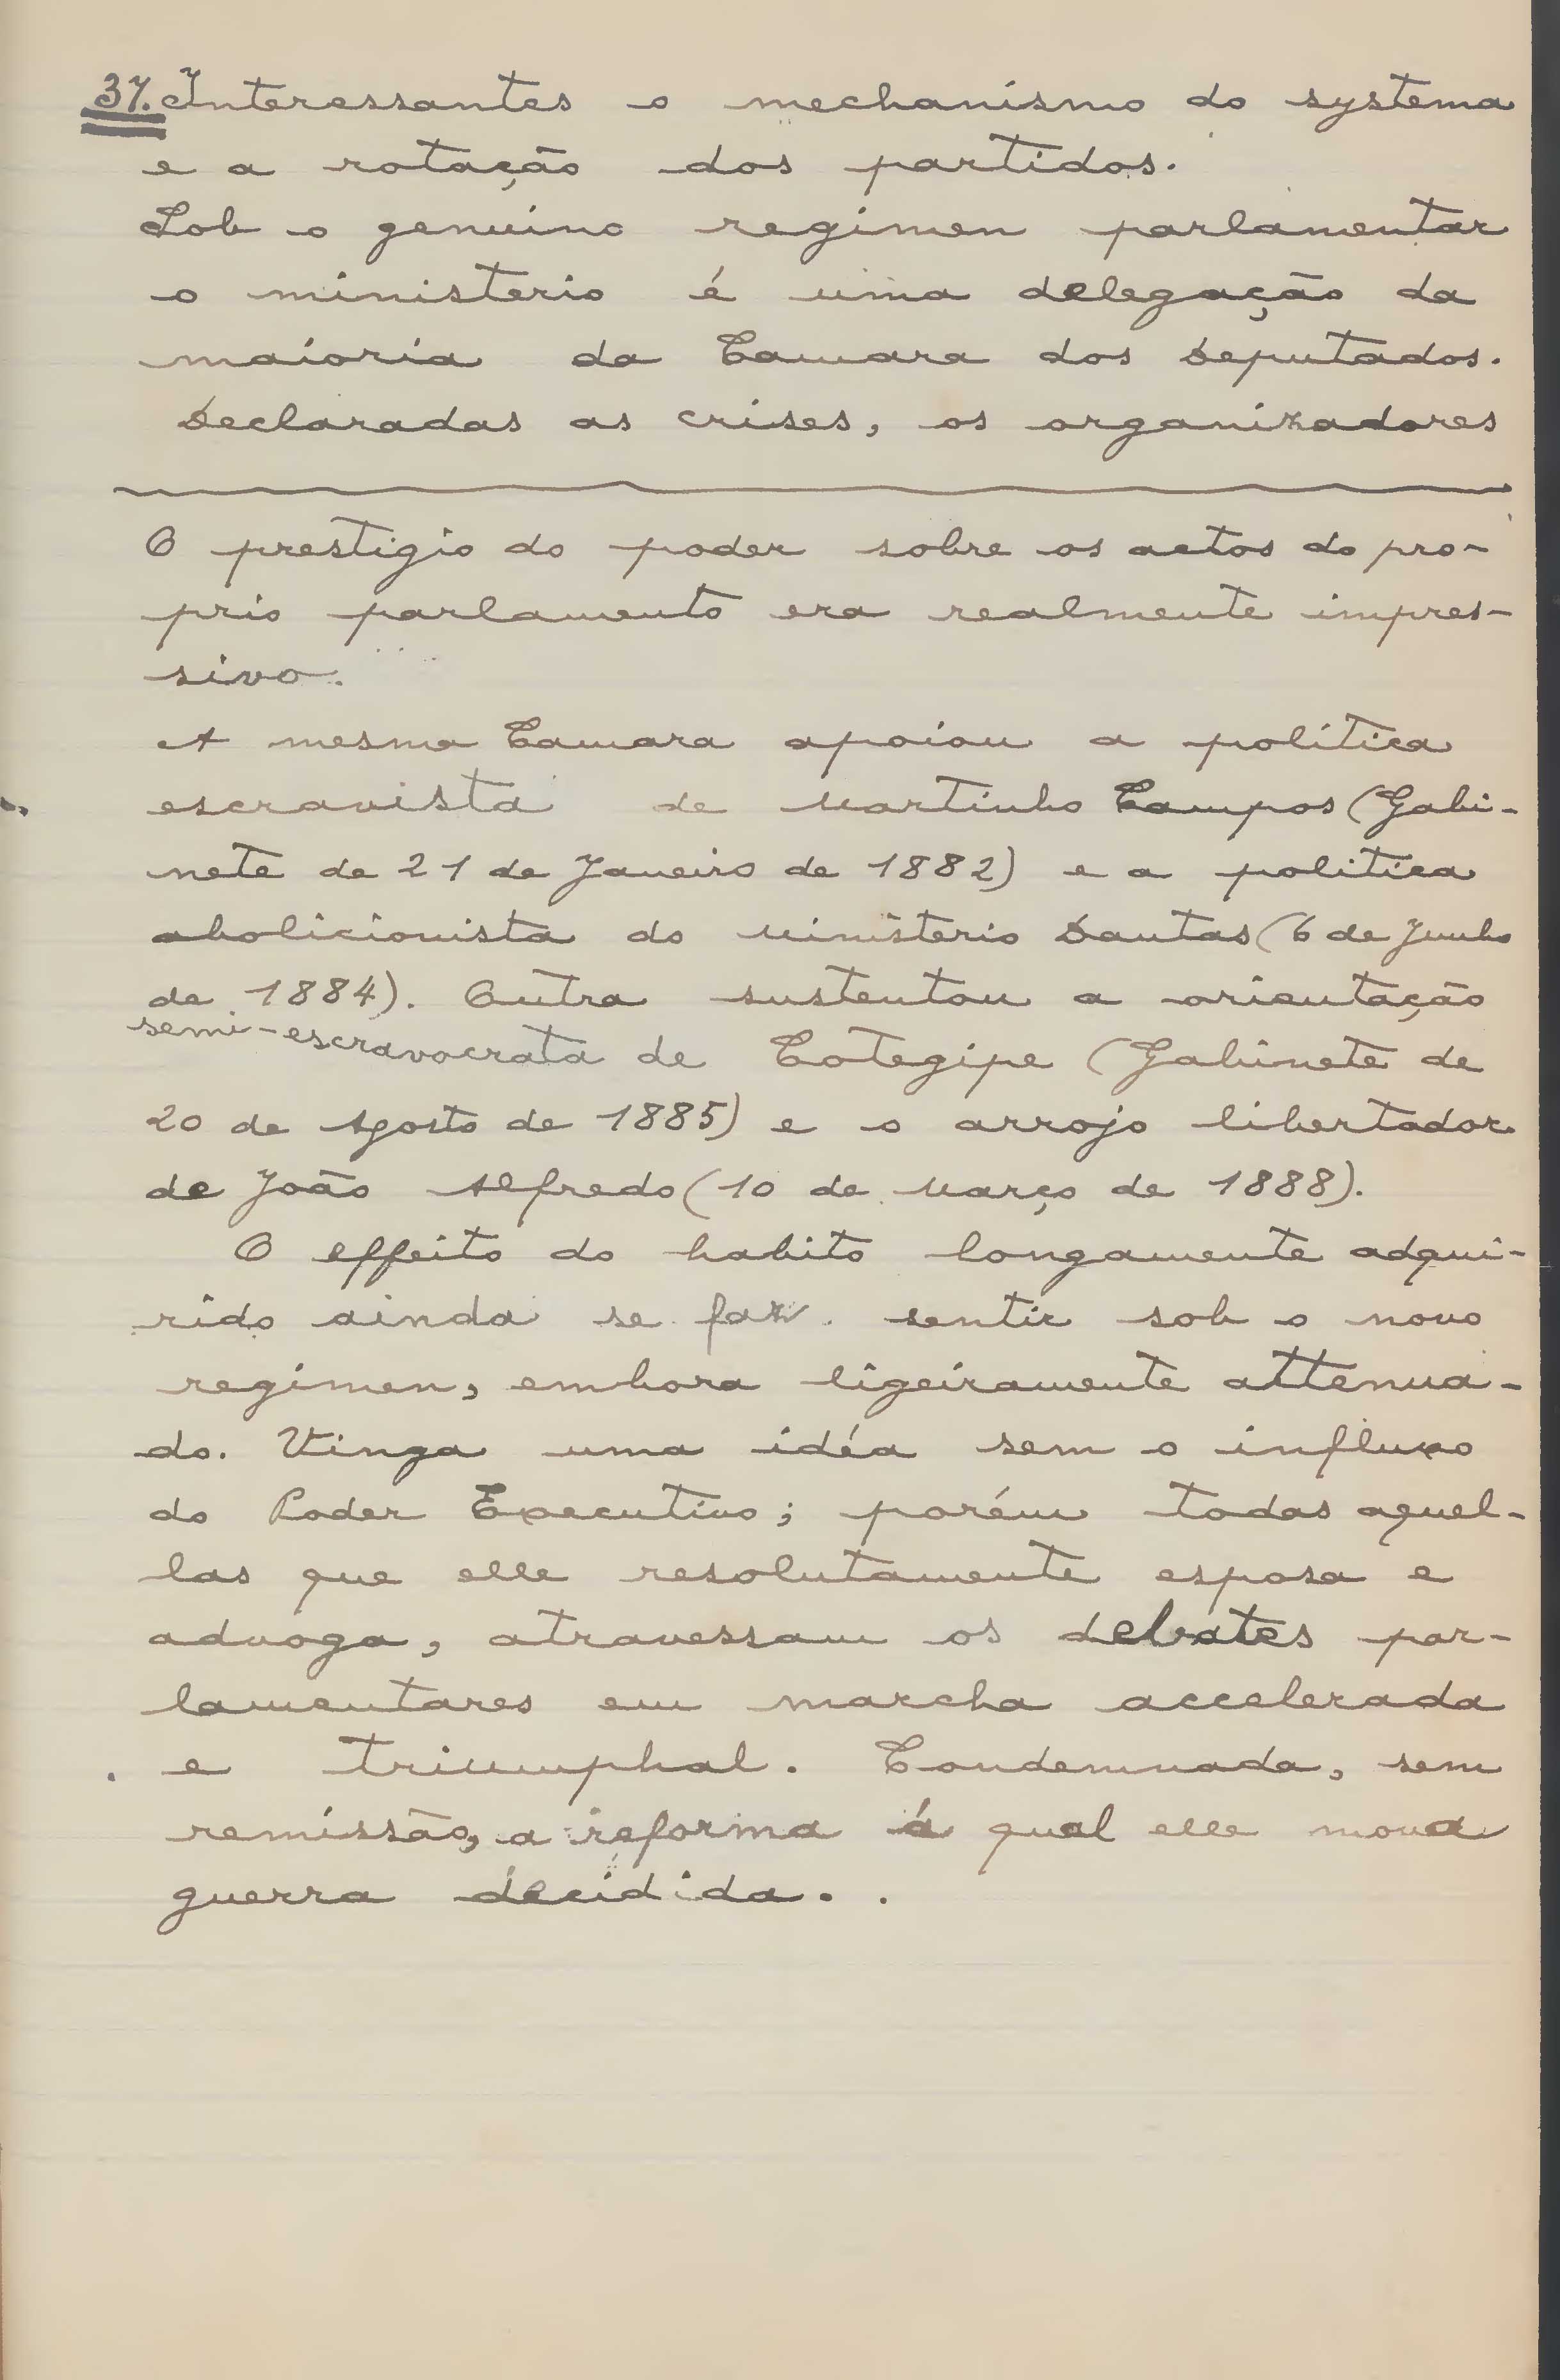 37. Interessantes o mechanismo do systema
e a rotação dos partidos.
Sob o genuino regimen parlamentar
o ministerio é uma delegação da
maioria da Camara dos Deputados.
Declaradas as crises, os organizadores
O prestigio do poder sobre os actos do pro-
prio parlamento era realmente impres-
sivo.
A mesma Camara apoiou a politica
escravista de Martinho Campos (Gabi-
nete de 21 de Janeiro de 1882) e a politica
abolicionista do Ministerio Dantas (6 de Junho
de 1884). Outra sustentou a orientação
semi-escravocrata de Cotegipe (Gabinete de
20 de Agosto de 1885) e o arrojo libertador
de João Alfredo (10 de Março de 1888).
O effeito do habito longamente adqui-
rido ainda se faz sentir sob o novo
regimen, embora ligeiramente attenua-
do. Vinga uma idéa sem o influxo
do Poder Executivo; porém todas aquel-
las que elle resolutamente esposa e
advoga, atravessam os debates par-
lamentares em marcha accelerada
e triumphal. Condemnada, sem
remissão, a reforma á qual elle mova
guerra decidida.